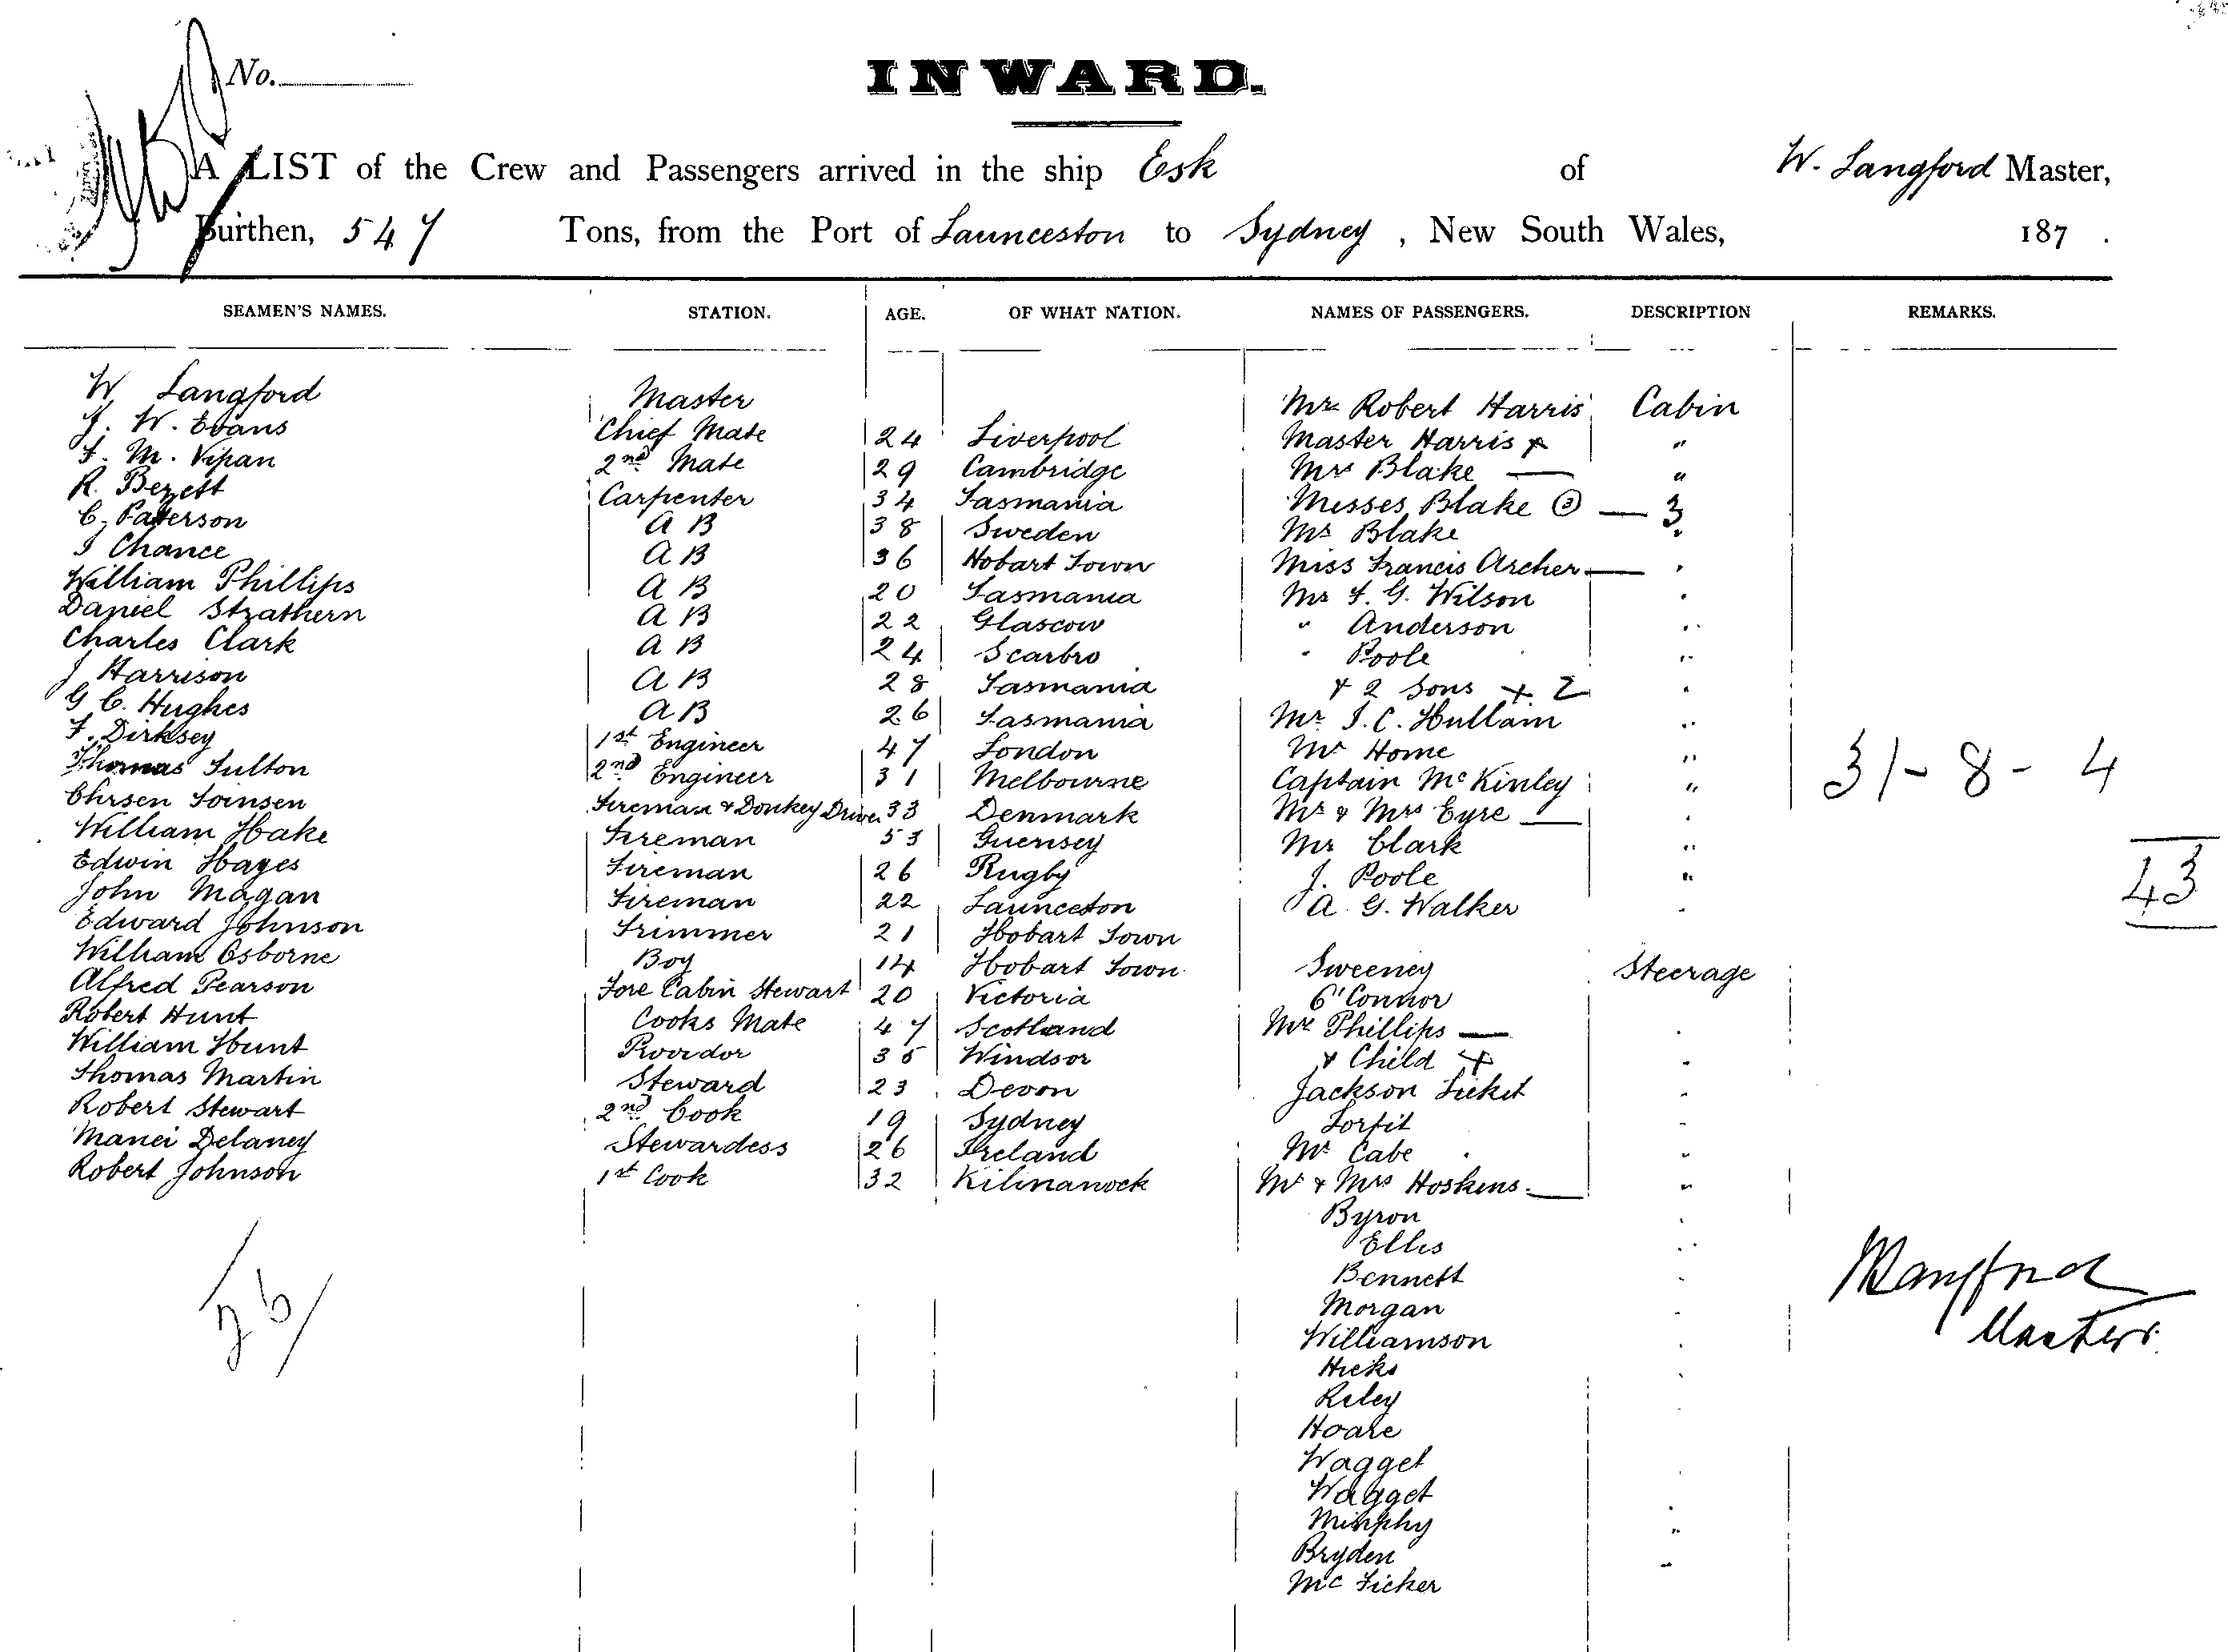 No.
INWARD.
A LIST of the Crew and Passengers arrived in the ship Esk of W. Langford Master,
Burthen, 547 Tons, from the Port of Launceston to Sydney, New South Wales, 187 .
SEAMEN'S NAMES. STATION. AGE. OF WHAT NATION. NAMES OF PASSENGERS. DESCRIPTION REMARKS.
W Langford Master Mr Robert Harris Cabin
J. W. Evans Chief Mate 24 Liverpool Master Harris x "
F. M. Vipan 2nd Mate 29 Cambridge Mrs Blake — "
R. Bezett Carpenter 34 Tasmania Misses Blake ③ — 3
C. Paterson A B 38 Sweden Mr Blake "
J Chance A B 36 Hobart Town Miss Francis Archer — "
William Phillips A B 20 Tasmania Mr F. G. Wilson "
Daniel Strathern A B 22 Glascow " Anderson "
Charles Clark A B 24 Scarbro " Poole "
J Harrison A B 28 Tasmania + 2 Sons + 2 "
G C. Hughes A B 26 Tasmania Mr J. C. Hullam "
F. Dirksey 1st Engineer 47 London Mr Home "
Thomas Sulton 2nd Engineer 31 Melbourne Captain McKinley " 31 - 8 - 4
Chrsen Soinsen Fireman & Donkey Driver 33 Denmark Mr & Mrs Eyre — "
William Hake Fireman 53 Guernsey Mr Clark "
Edwin Hayes Fireman 26 Rugby J. Poole " 43
John Magan Fireman 22 Launceton A. G. Walker "
Edward Johnson Trimmer 21 Hobart Town
William Osborne Boy 14 Hobart Town Sweeney Steerage
Alfred Pearson Fore Cabin Stewart 20 Victoria O'Connor
Robert Hunt Cooks Mate 47 Scotland Mrs Phillips — "
William Hunt Providor 35 Windsor & Child + "
Thomas Martin Steward 23 Devon Jackson Ticket "
Robert Stewart 2nd Cook 19 Sydney Torfit "
Manei Delaney Stewardess 26 Ireland Mc Cabe "
Robert Johnson 1st Cook 32 Kilmanock Mr & Mrs Hoskins — "
Byron "
Ellis "
Bennett "
Morgan "
Williamson "
Hicks "
Riley
Hoare
Wagget
Wagget "
Minphy "
Bryden "
Mc Ficker
26/
WLangford
Master